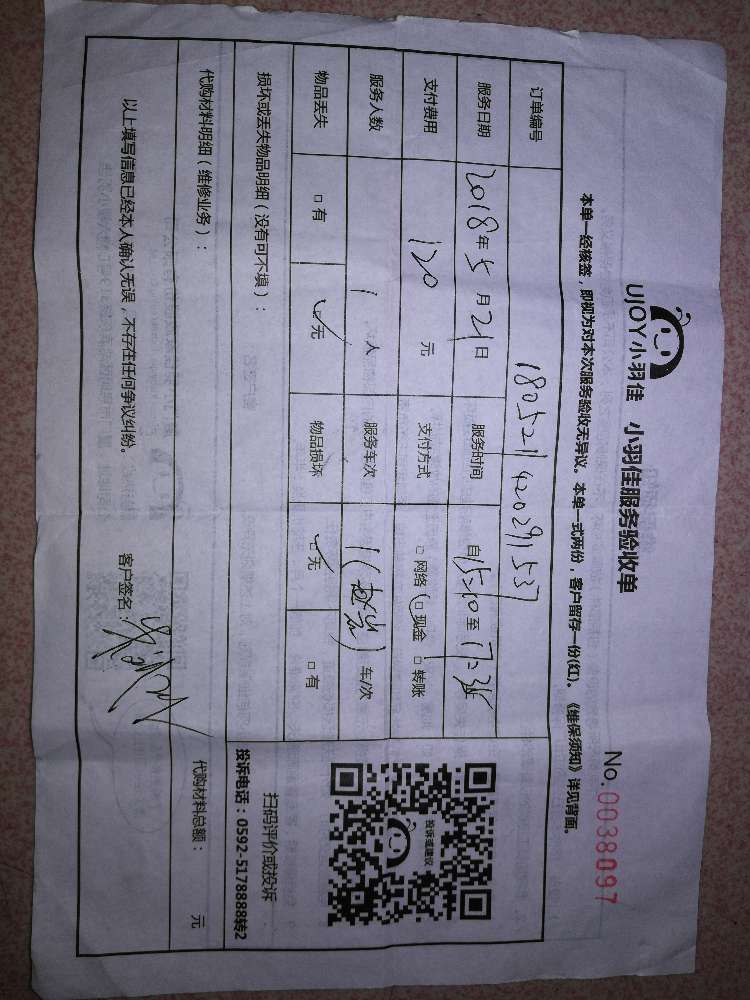 UJOY小羽佳 小羽佳服务验收单
No.0038097
本单一经核签，即视为对本次服务验收无异议。本单一式两份，客户留存一份(红)。《维保须知》详见背面。
订单编号 180521420291537
服务日期 2018年5月21日 服务时间 自15:10至17:35
支付费用 120元 支付方式 □网络 □现金 □转账
服务人数 1人 服务车次 1 车/次
物品丢失 □有 □无 物品损坏 □无 □有
投诉或建议
扫码评价或投诉
投诉电话：0592-5178888转2
损坏或丢失物品明细（没有可不填）：
代购材料明细（维修业务）： 代购材料总额： 元
以上填写信息已经本人确认无误，不存在任何争议纠纷。 客户签名：